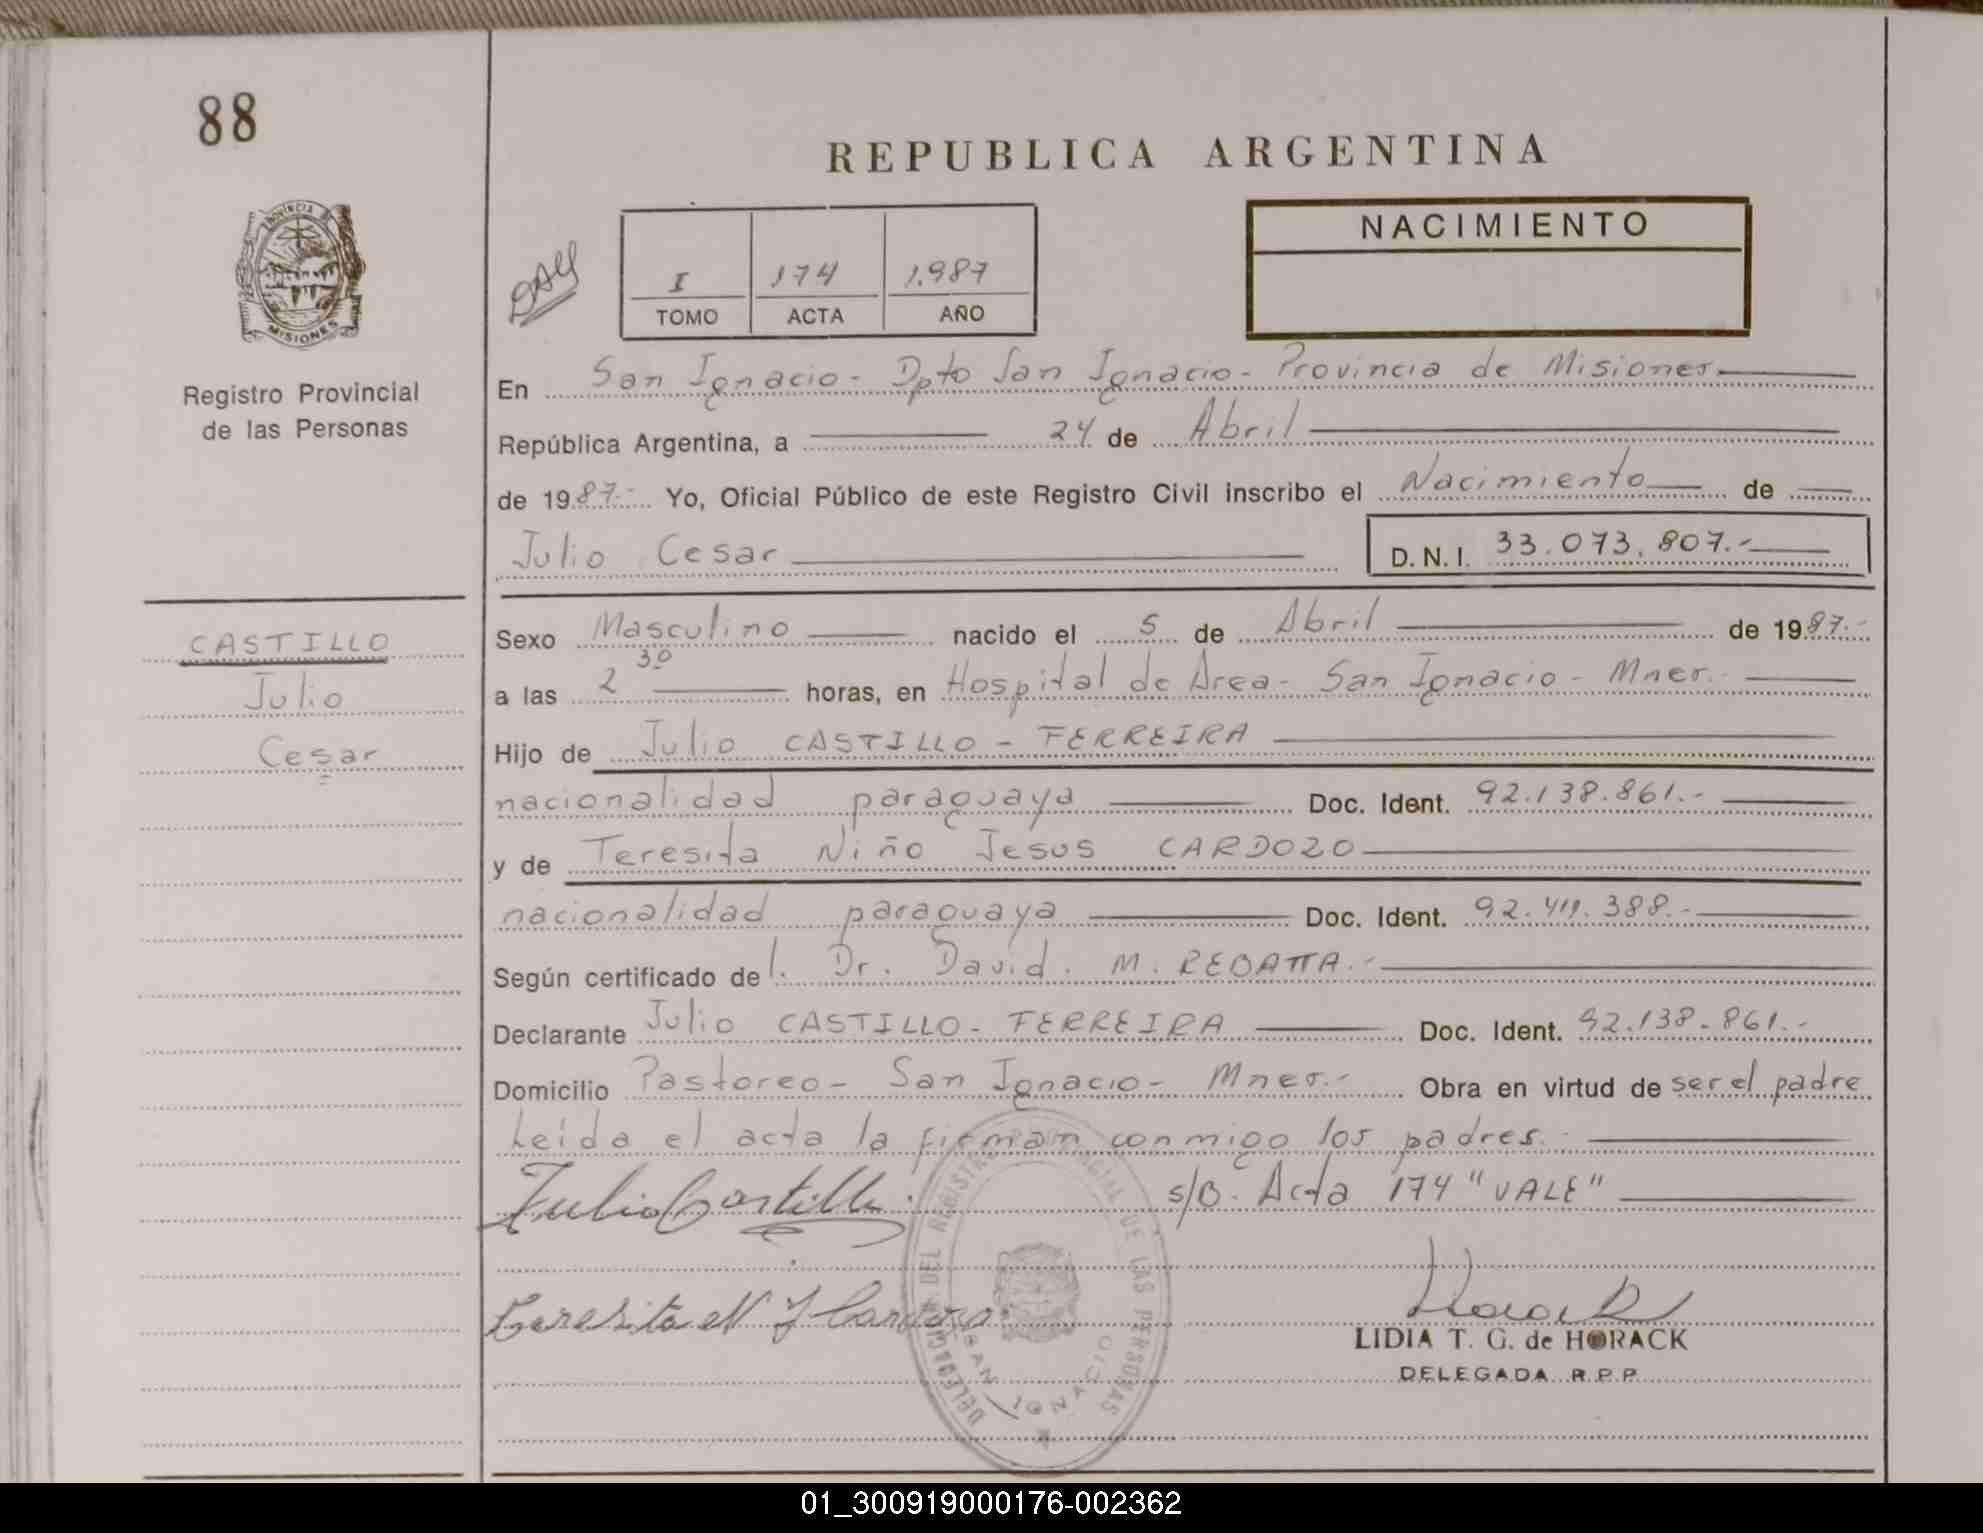 88
REPUBLICA ARGENTINA
PROVINCIA DE
MISIONES
Registro Provincial
de las Personas
NACIMIENTO
I 174 1.987
TOMO ACTA AÑO
En San Ignacio - Dpto San Ignacio - Provincia de Misiones
República Argentina, a 24 de Abril
de 1987.- Yo, Oficial Público de este Registro Civil inscribo el Nacimiento de
Julio Cesar D.N.I. 33.073.807.-
CASTILLO
Julio
Cesar
Sexo Masculino nacido el 5 de Abril de 1987.-
a las 2 30 horas, en Hospital de Area - San Ignacio - Mnes.-
Hijo de Julio CASTILLO - FERREIRA
nacionalidad paraguaya Doc. Ident. 92.138.861.-
y de Teresita Niño Jesus CARDOZO
nacionalidad paraguaya Doc. Ident. 92.411.388.-
Según certificado del. Dr. David. M.
Declarante Julio CASTILLO - FERREIRA Doc. Ident. 92.138.861.-
Domicilio Pastoreo - San Ignacio - Mnes.- Obra en virtud de ser el padre
Leida el acta la firman conmigo los padres.-
Julio Castillo s/B. Acta 174 "VALE"
Teresita N J Cardozo
Horack
LIDIA T. G. de HORACK
DELEGADA R.P.P.
DELEGACION DEL REGISTRO PROVINCIAL DE LAS PERSONAS
SAN IGNACIO
01_300919000176-002362